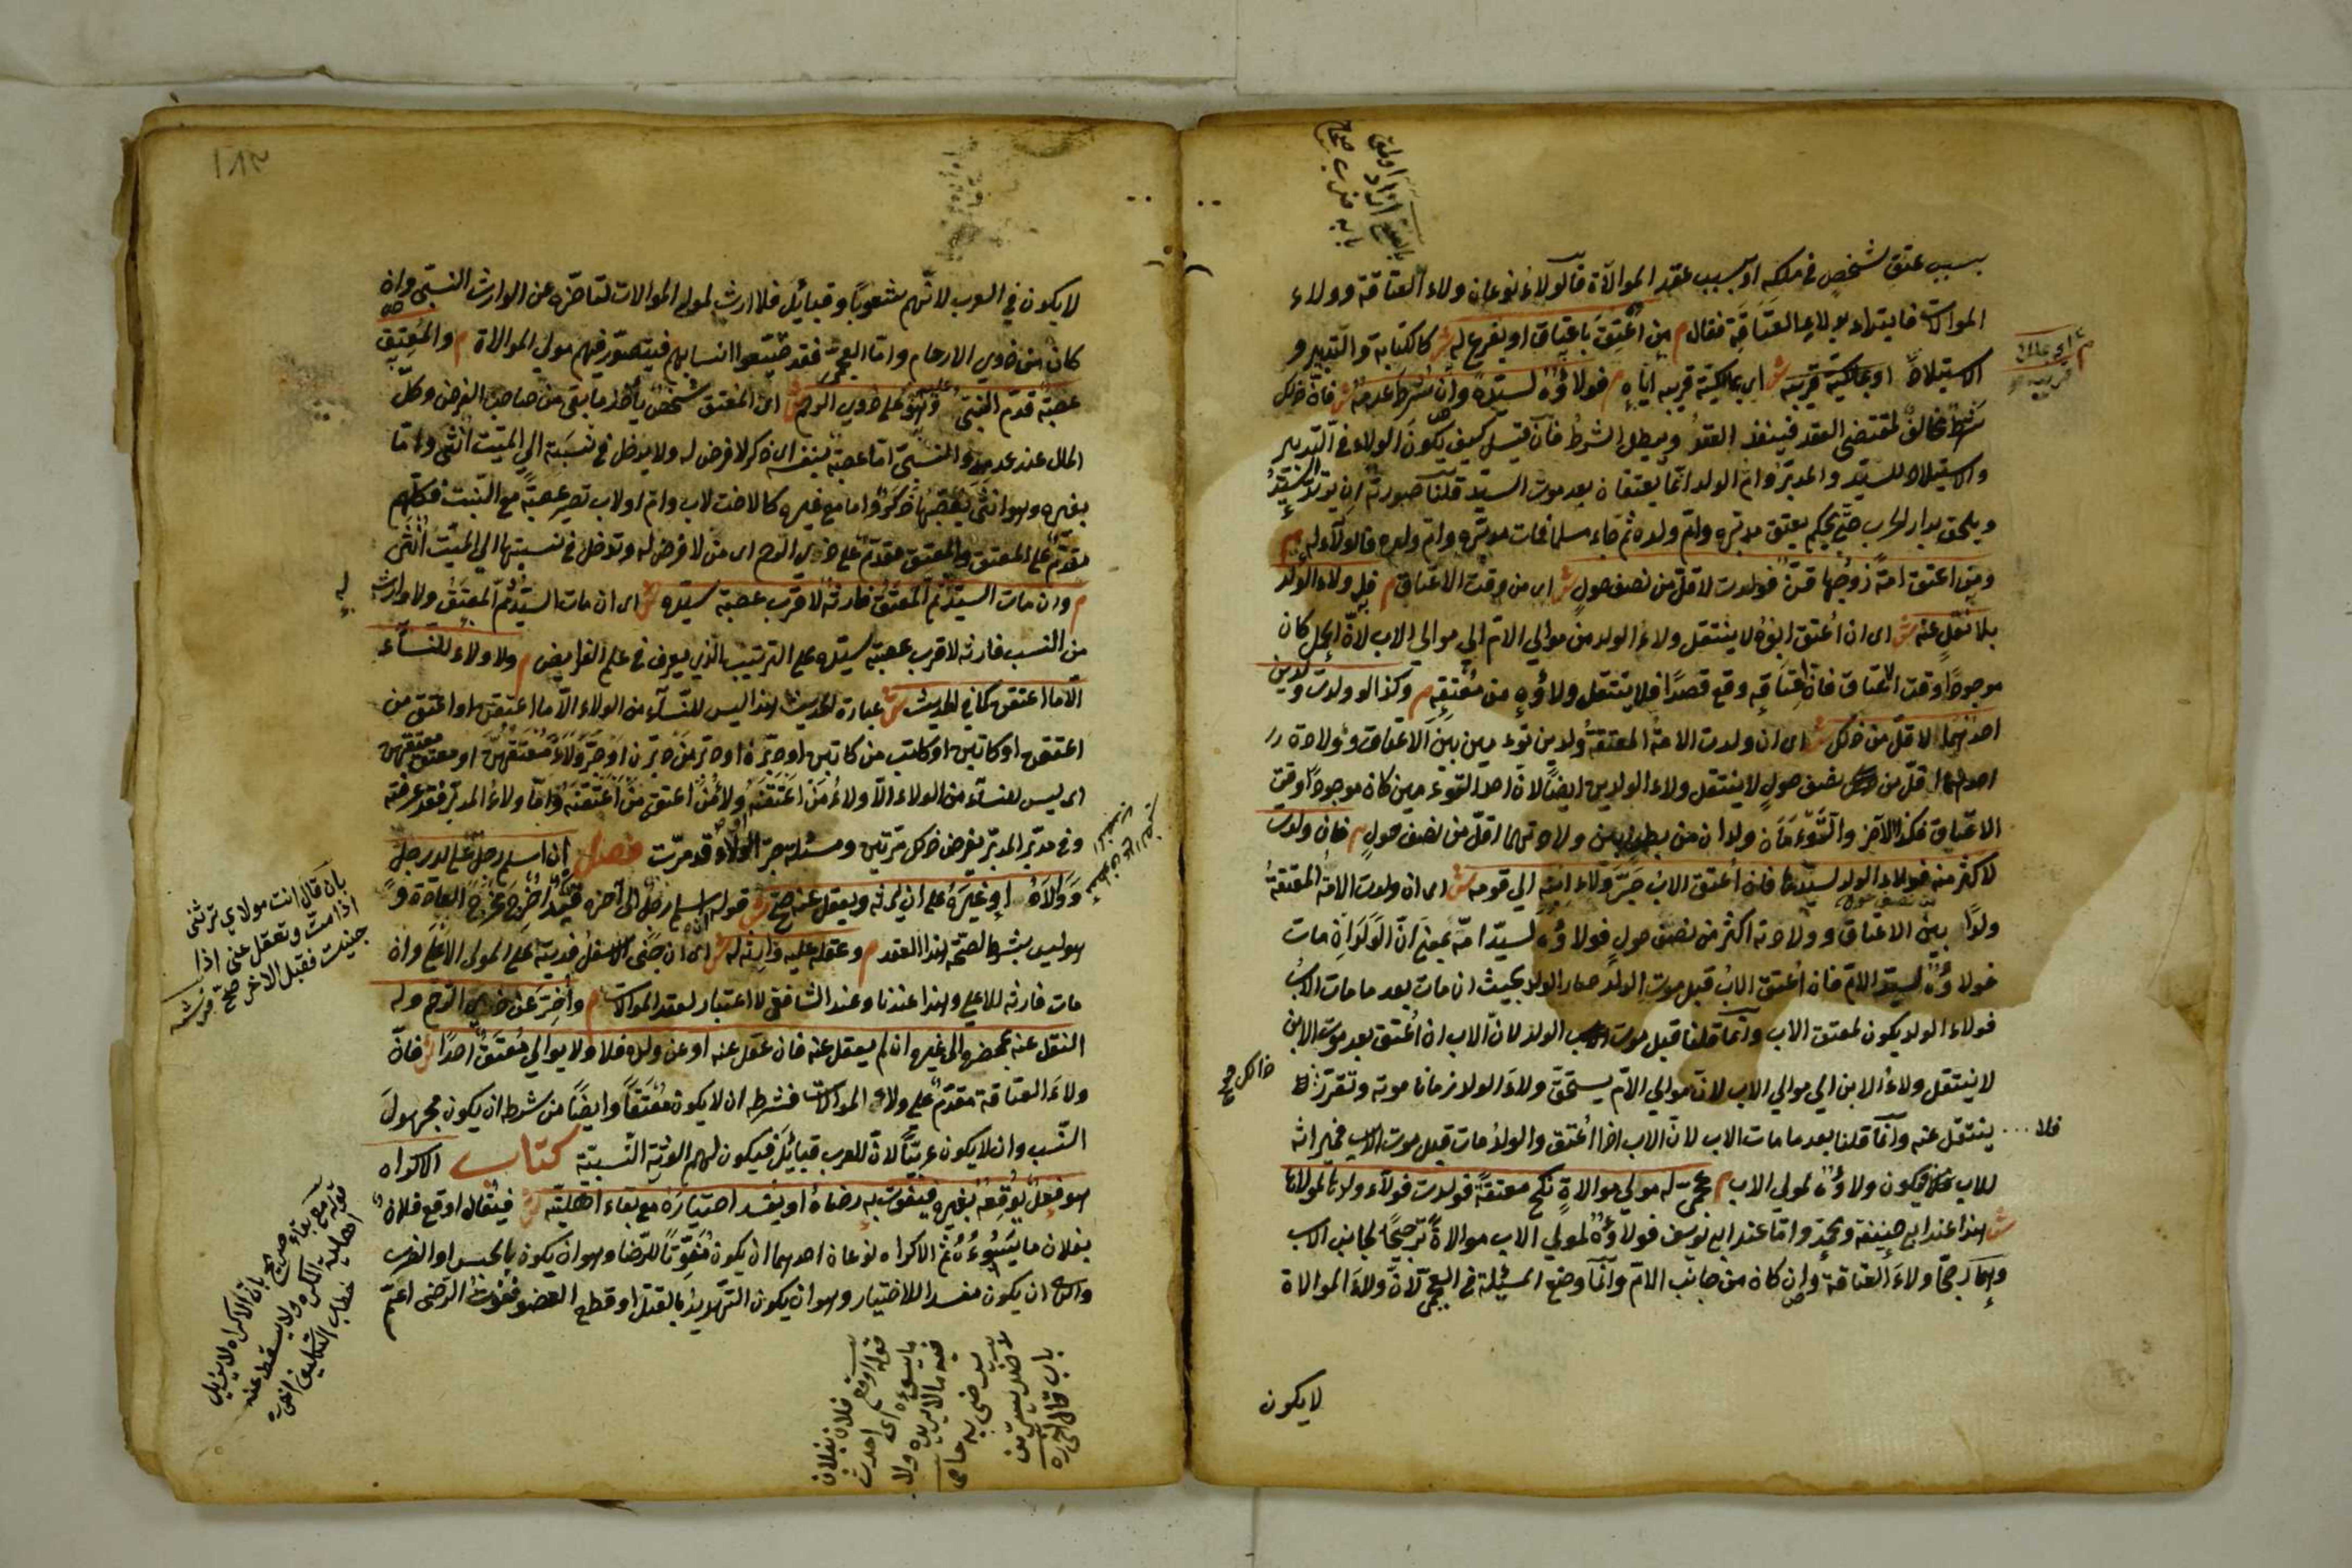 بسبب عتق لشخص في ملكه او بسبب عقد الموالاة فالولاء نوعان ولاء العتاقة وولاء
الموالات فابتداء بولاء العتاقة فقال م من اعتق باعتاق او بفرع له ش كالكتابة والتدبير و
الاستيلاد او بملكية قريبه ش اي بمالكية قريبه اياه م فولاؤه لسيده وان شرط عدمه ش فان ذلك
شرط مخالف لمقتضى العقد فينفذ العقد ويبطل الشرط فان قيل كيف يكون الولاء في التدبير
والاستيلاد للسيد والمدبر وام الولد انما يعتقان بعد موت السيد قلنا صورته ان يرتد السيد
ويلحق بدار الحرب حتى يحكم بعتق مدبره وام ولده ثم جاء مسلما فمات مدبره وام ولده فالولاء له م
ومن اعتق امة زوجها قن فولدت لاقل من نصف حول ش اي من وقت الاعتاق م فله ولاء الولد
بلا نقل عنه ش اي ان اعتق ابوه لا ينتقل ولاء الولد من موالي الام الي موالي الاب لان الحمل كان
موجودا وقت الاعتاق فان اعتاقه وقع قصدا فلا ينتقل ولاؤه من معتقه م وكذا لو ولدت ولدين
احدهما لاقل من ذلك ش اي ان ولدت الامة المعتقة ولدين توءمين بين الاعتاق وولادة
احدهما اقل من نصف حول لا ينتقل ولاء الولدين ايضا لان احد التوءمين كان موجودا وقت
الاعتاق فكذا الآخر والتوءمان ولدان من بطن بين ولادتهما اقل من نصف حول م فان ولدت
لاكثر منه فولاء الولد لسيدها فان اعتق الاب جر ولاء ابنه الي قومه ش اي ان ولدت الامة المعتقة
ولدا بين الاعتاق وولادته اكثر من نصف حول فولاؤه لسيد امه بمعنى ان الولد ان مات
فولاؤه لسيد الام فان اعتق الاب قبل موت الولد صار الولد بحيث ان مات بعد ما مات الاب
فولاء الولد يكون لمعتق الاب وانما قلنا قبل موت الولد لان الاب ان اعتق بعد موت الابن
لا ينتقل ولاء الابن الي موالي الاب لان موالي الام يستحق ولاء الولد زمان موته وتقرر
ذلك صح
فلا ... ينتقل عنه وانما قلنا بعد ما مات الاب لان الاب اذا اعتق والولد مات قبل موت الاب فميراثه
للاب فلا يكون ولاؤه لمولي الاب م عجمي له مولي موالاة نكح معتقة فولدت فولاء ولدها لمولاها
ش هذا عند ابي حنيفة ومحمد واما عند ابي يوسف فولاؤه لمولي الاب موالاة ترجيحا لجانب الاب
وهما رجحا ولاء العتاقة وان كان من جانب الام وانما وضع المسئلة في العجمي لان ولاء الموالاة
لا يكون
١٨٢
لا يكون في العرب لانهم شعوبا وقبائل فلا ارث لمولى الموالات لتاخره عن الوارث النسبي وان
كان من ذوي الارحام واما العجم فقد ضيعوا انسابهم فيتصور فيهم مولي الموالاة م والمعتق
عصبة قدم النسبي عليه وهو على ذوي الرحم ش اي المعتق شخص ياخذ ما بقى من صاحب الفرض وكل
المال عند عدمه والنسبي اما عصبة بنفسه اي ذكر لا فرض له ولا يدخل في نسبته الي الميت انثى واما
بغيره وهو انثى يعصبها ذكر واما مع غيره كالاخت لاب وام او لاب تصير عصبة مع البنت فكلهم
مقدم على المعتق والمعتق مقدم على ذوي الرحم اي من لا فرض له وتدخل في نسبتها الي الميت انثى
م وان مات السيد ثم المعتق فارثه لاقرب عصبة سيده ش اي ان مات السيد ثم المعتق ولا وارث له
من النسب فارثه لاقرب عصبة سيده على الترتيب الذي يعرف في علم الفرايض م ولا ولاء للنساء
الا ما اعتقن كما في الحديث ش عبارة الحديث هذا ليس للنساء من الولاء الا ما اعتقن او اعتق من
اعتقن او كاتبن او كاتب من كاتبن او دبرن او دبر من دبرن او جر ولاء معتقهن او معتق معتقهن
اي ليس للنساء من الولاء الا ولاء من اعتقنه ولاء من اعتق من اعتقنه واما ولاء المدبر فقد عرفته
وفي مدبر المدبر يفرض ذلك مرتين ومسئلة جر الولاء قد مرت فصل ان اسلم رجل على يد رجل
ووالاه او غيره على ان يرثه ويعقل عنه صح ش قوله اسلم رجل الى آخره قيد اخرج مخرج العادة و
هو ليس بشرط لصحة هذا العقد م وعقله عليه وارثه له ش اي ان جنى الاسفل فديته على المولى الاعلى وان
مات فارثه للاعلي وهذا عندنا وعند الشافعي لا اعتبار لعقد الموالات م واخر عن ذوي الرحم وله
النقل عنه بمحضره الى غيره ان لم يعقل عنه فان عقل عنه او عن ولده فلا ولا يوالي معتق احدا ش فان
ولاء العتاقة مقدم على ولاء الموالات فشرطه ان لا يكون معتقا وايضا من شرطه ان يكون مجهول
النسب وان لا يكون عربيا لان للعرب قبائل فيكون لهم الورثة النسبية كتاب الاكراه
هو فعل يوقعه بغيره فيفوت به رضاه او يفسد اختياره مع بقاء اهليته ش فيقال اوقع فلان
بفلان ما يسوءه ثم الاكراه نوعان احدهما ان يكون مفوتا للرضا وهو ان يكون بالحبس او الضرب
والثاني ان يكون مفسدا للاختيار وهو ان يكون التهديد بالقتل او قطع العضو ففوت الرضى اعم
بان قال انت مولاي ترثني
اذا مت وتعقل عني اذا
جنيت فقبل الاخر صح
قوله مع بقاء
اهلية المكره ولا يسقط عنه
صريح بان الاكراه لا يزيل
قوله اوقع فلان بفلان